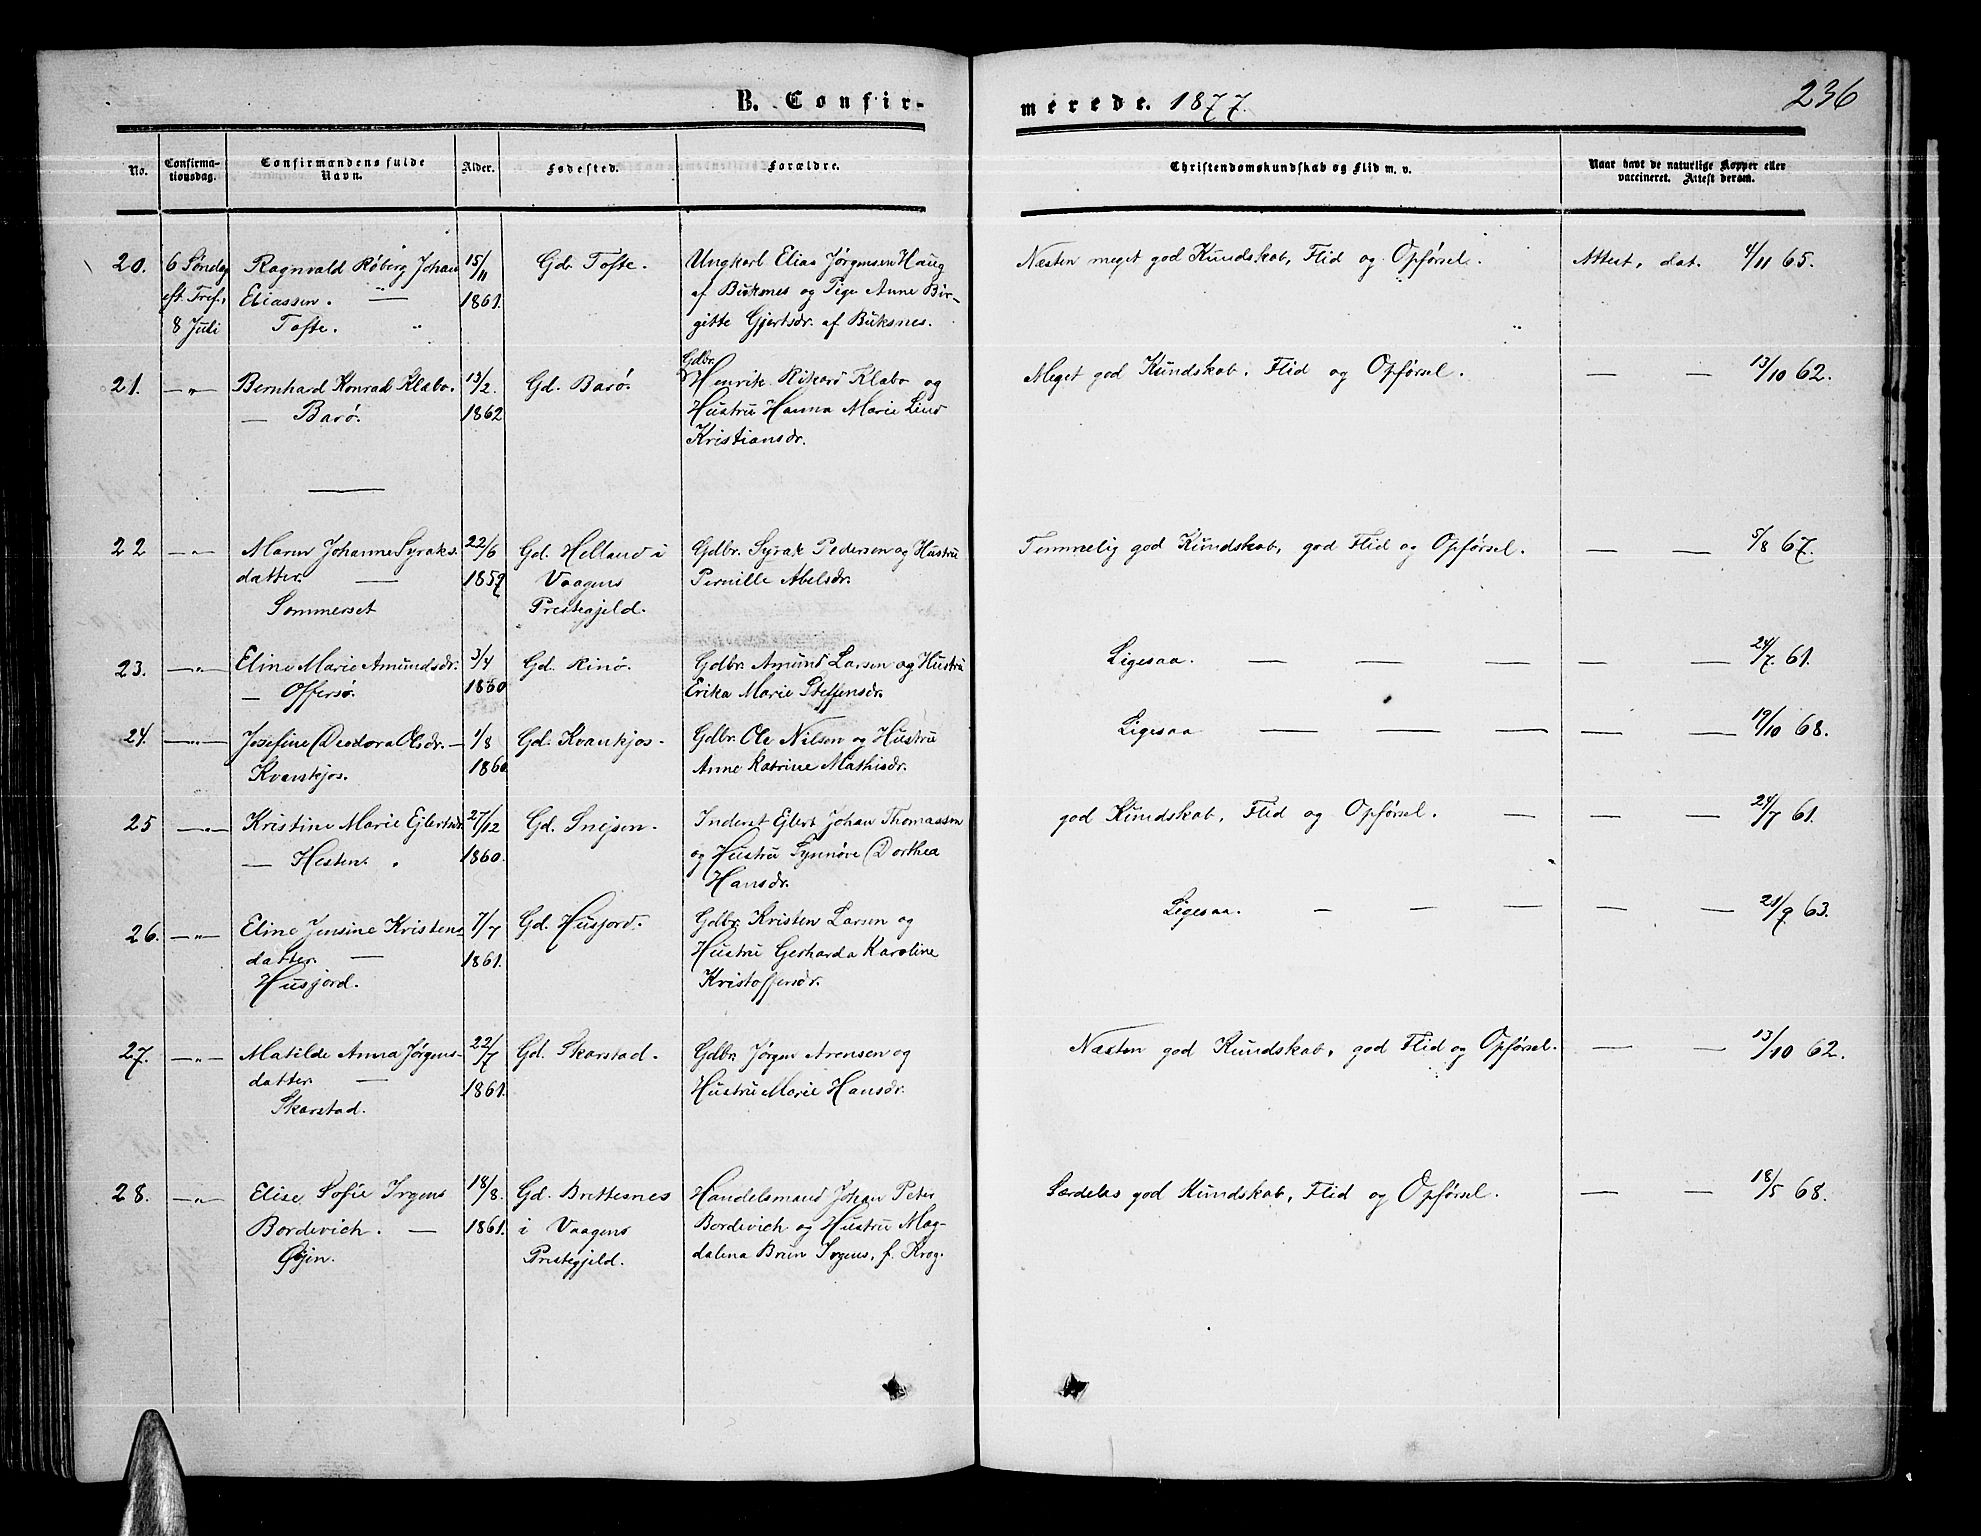 B. Confir-
merede. 1877.
236
No.
Confirma-
tionsdag.
Confirmandens fulde
Navn.
Alder.
Fødested.
Forældre.
Christendomskundskab og Flid m. v.
Naar havt de naturlige Kopper eller
vaccineret. Attest derom.
20. 6 Søndag Ragnvald Røberg Johan 15/11 Gd. Tofte. Ungkarl Elias Jørgensen Haug Næsten meget god Kundskab, Flid og Opførsel. Attest, dat. 4/11 65.
eft. Tref. Eliassen. — 1861. af Buksnes og Pige Anne Bir-
8 Juli Tofte. " gitte Gjertsdr. af Buksnes. "
21. — " — Bernhard Konrad Klæbo. 13/2. Gd. Barø. Gdbr. Henrik Rikard Klæbo og Meget god Kundskab, Flid og Opførsel. — — 13/10 62.
— Barø. 1862 Hustru Hanna Marie Lind
Kristiansdr.
22 — " — Maren Johanne Syraks- 22/6 Gd. Helland i Gdbr. Syrak Pedersen og Hustru Temmelig god Kundskab, god Flid og Opførsel. — — 5/8 67.
datter. — 1859 Vaagens Pernille Abelsdr.
Sommerset Prestegjeld.
23. — " — Eline Marie Amundsdr. 3/4 Gd. Rinø. Gdbr. Amund Larsen og Hustru Ligesaa. — — — — — — 24/7. 61.
— Offersø. 1860 Erika Marie Steffensdr.
24. — " — Josefine Deodora Olsdr. — 1/8 Gd. Kvankjos. Gdbr. Ole Nilsen og Hustru Ligesaa — — — — — — 19/10 68.
Kvankjos. 1860. Anne Katrine Mathisdr.
25 — " — Kristine Marie Ejlertsdr. 27/12 Gd. Snejsen. Inderst Ejlert Johan Thomassen god Kundskab, Flid og Opførsel. — — — 24/7 61.
— Hesten. 1860. og Hustru Synnøve Dorthea
Hansdr.
26. — " — Eline Jensine Kristens- 7/7 Gd. Husjord. Gdbr. Kristen Larsen og Ligesaa. — — — — — 63.
datter. — 1861. Hustru Gerharda Karoline
Husjord. Kristoffersdr.
27. — " — Matilde Anna Jørgens- 22/7 Gd. Skarstad. Gdbr. Jørgen Arensen og Næsten god Kundskab, god Flid og Opførsel. — — 13/10 62.
datter. — 1861. Hustru Marie Hansdr.
Skarstad.
28. — " — Elise Sofie Irgens 18/8. Gd. Brettesnes Handelsmand Johan Peter Særdeles god Kundskab, Flid og Opførsel. — — 18/5 68.
Bordevich. — 1861. i Vaagens Bordevich og Hustru Mag-
Øyjn. Prestegjeld. dalena Brun Irgens, f. Krog.